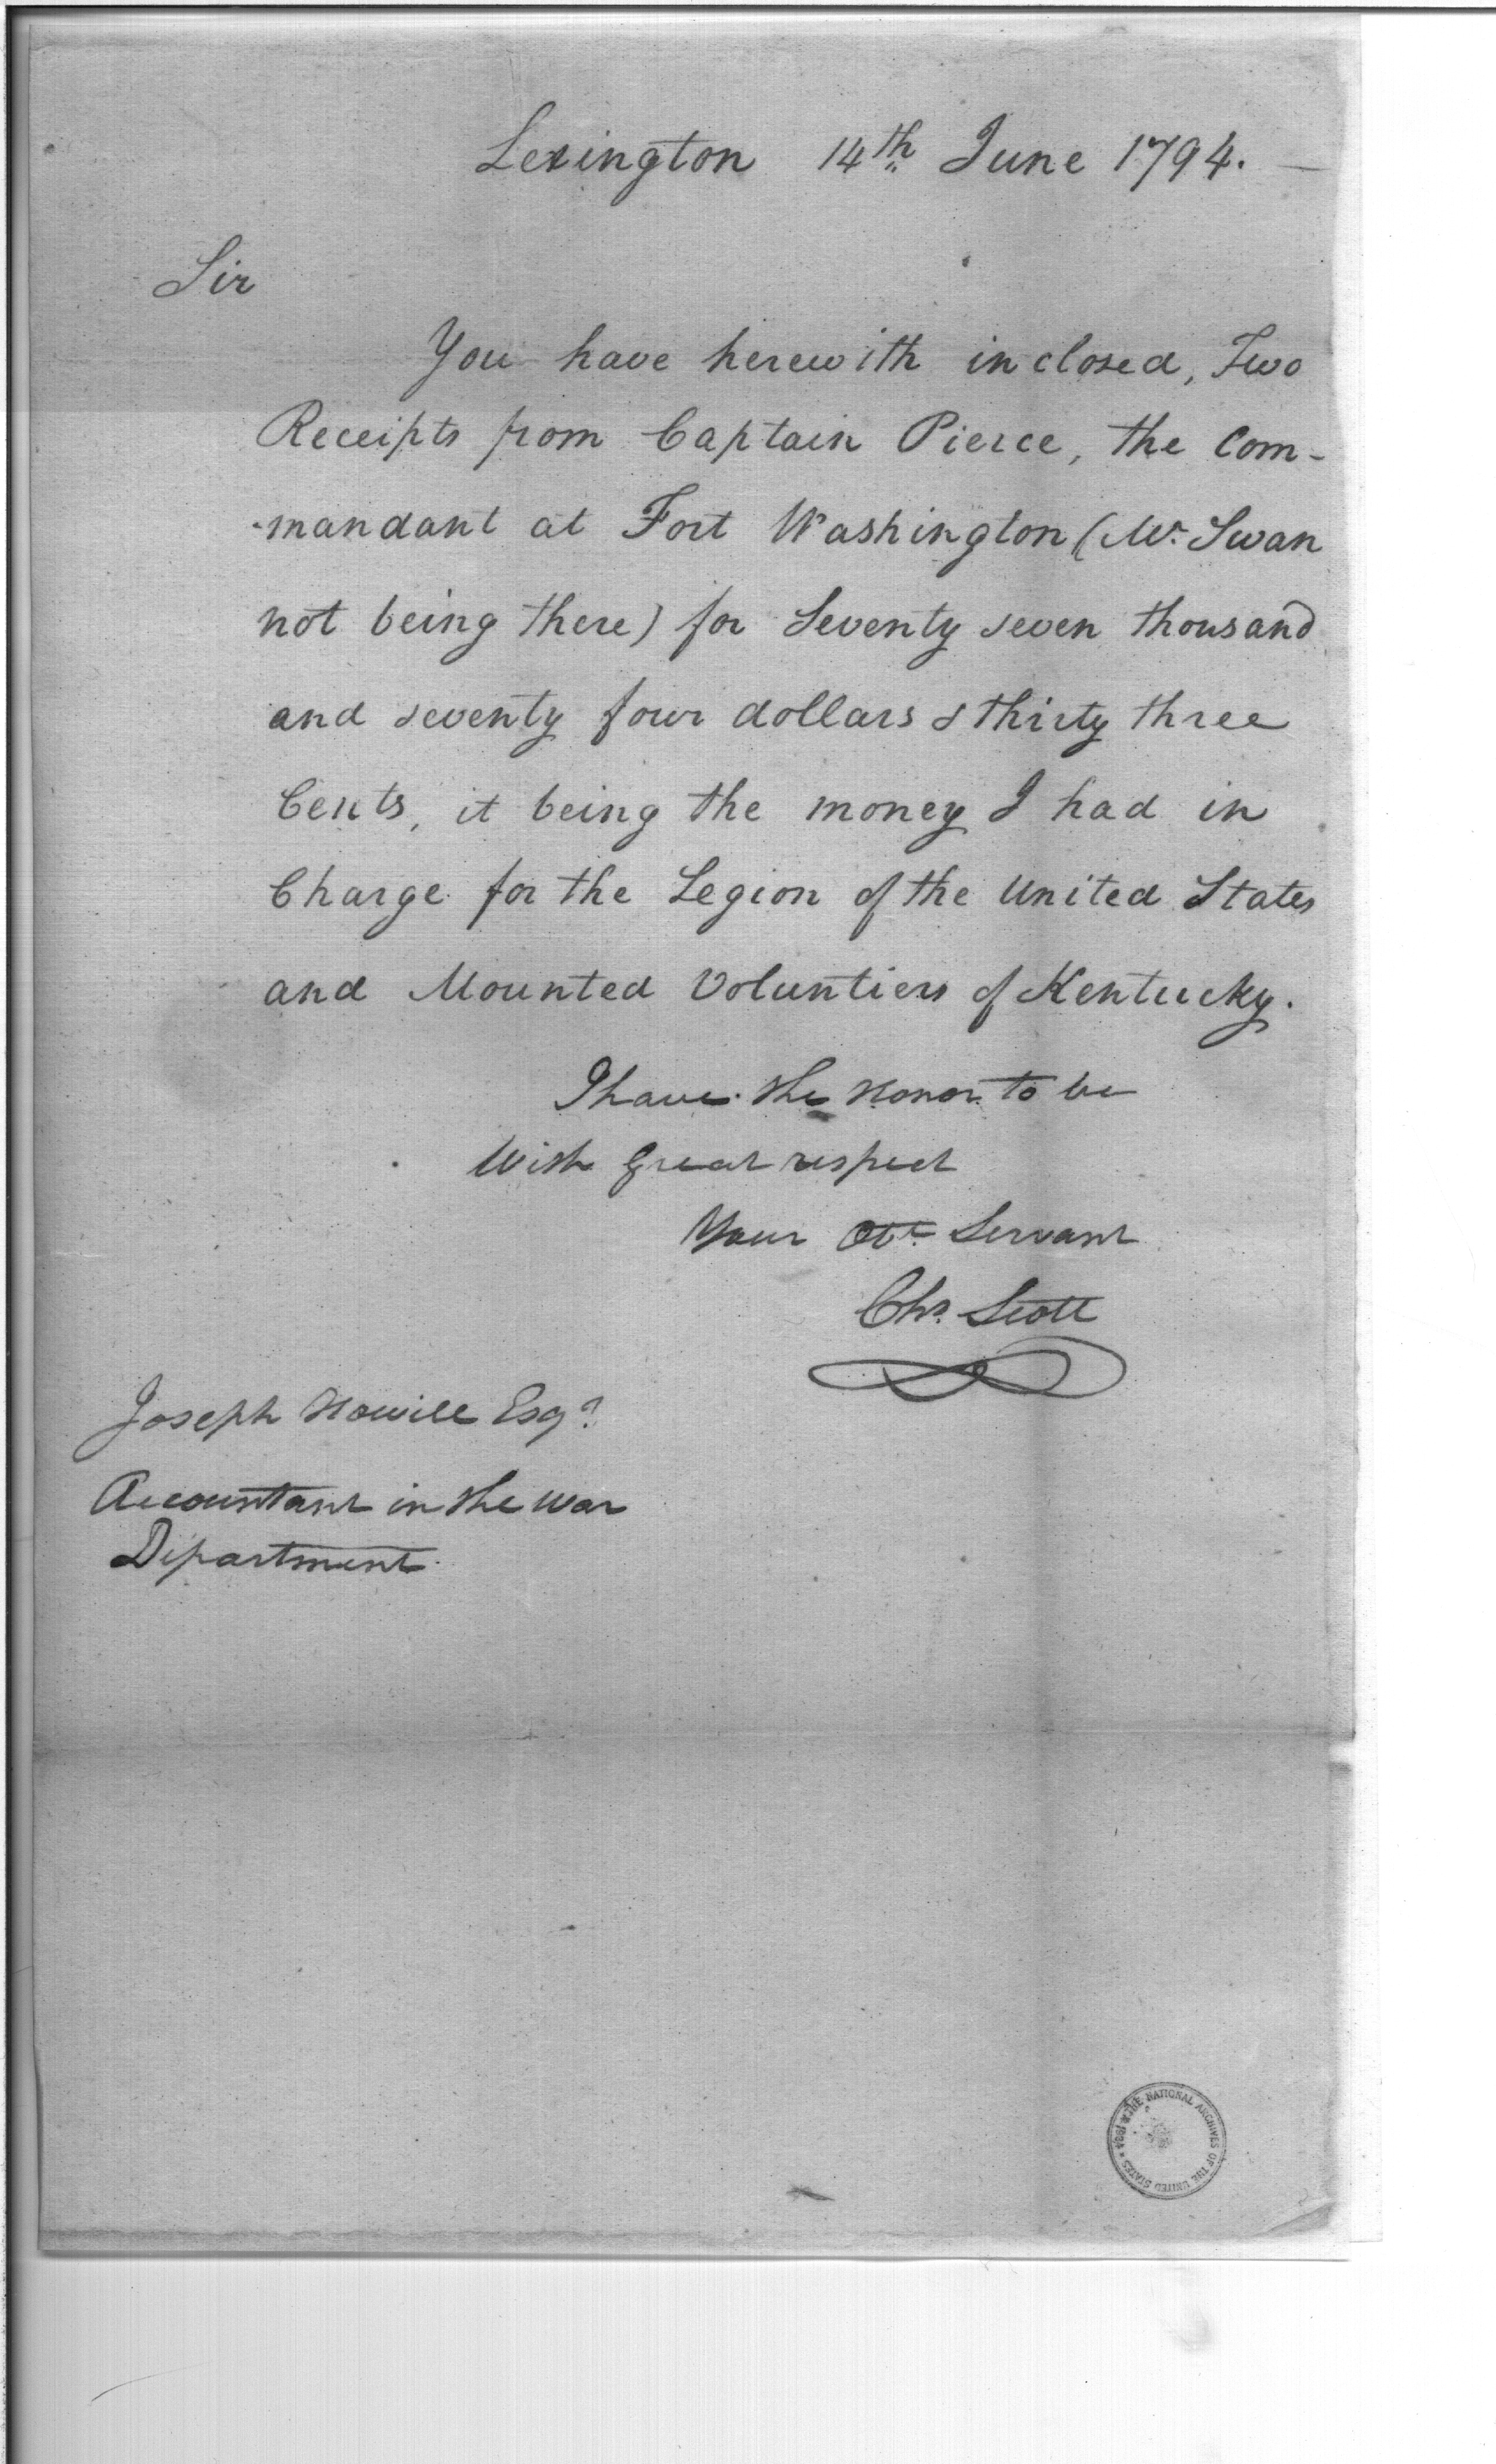 Lexington 14th June 1794. —
Sir
You have herewith inclosed, Two
Receipts from Captain Pierce, the Com-
-mandant at Fort Washington (Mr. Swan
not being there) for Seventy seven thousand
and seventy four dollars & thirty three
Cents, it being the money I had in
Charge for the Legion of the United States
and Mounted Voluntiers of Kentucky.
I have the Honor to be
With Great respect
Your Obt Servant
Chs. Scott
Joseph Howill Esqr
Accountant in the War
Department.
THE NATIONAL ARCHIVES OF THE UNITED STATES * 1934 *